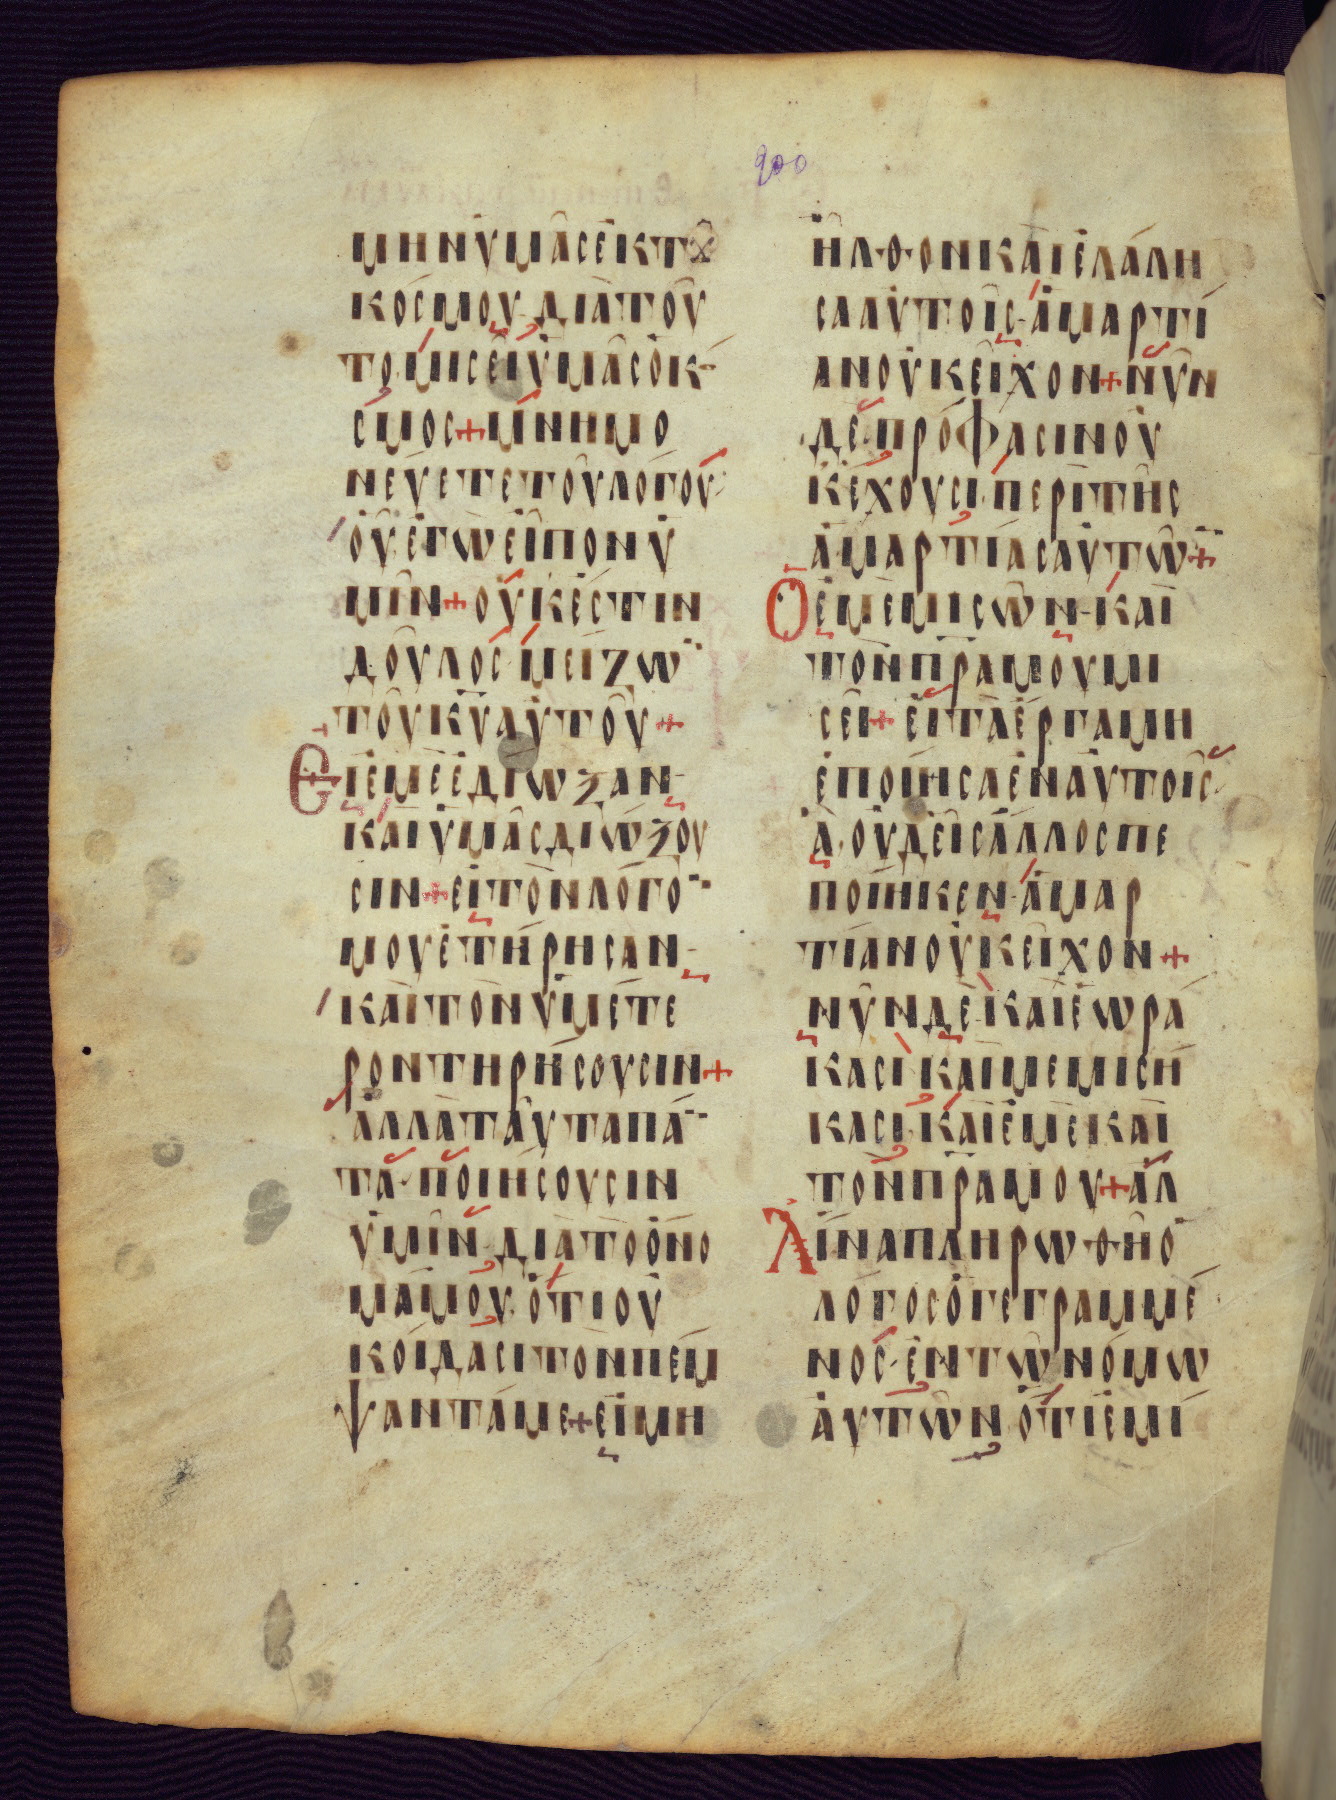 ΜΗΝΥΜΑСΕΚΤȢ
ΚΟСΜΟΥ·ΔΙΑΤΟΥ
ΤΟΜΙСΕΙΥΜΑСΟΚ
СΜΟС+ΜΝΗΜΟ
ΝΕΥΕΤΕΤΟΥΛΟΓΟΥ·
ΟΥΕΓΩΕΙΠΟΝΥ
ΜΙΝ+ΟΥΚΕСΤΙΝ
ΔΟΥΛΟС·ΜΕΙΖΩ
ΤΟΥΚ̅Υ̅ΑΥΤΟΥ+
ΕΙΕΜΕΕΔΙΩΞΑΝ·
ΚΑΙΥΜΑСΔΙΩΞΟΥ
СΙΝ+ΕΙΤΟΝΛΟΓΟ
ΜΟΥΕΤΗΡΗСΑΝ·
ΚΑΙΤΟΝΥΜΕΤΕ
ΡΟΝΤΗΡΗСΟΥСΙΝ+
ΑΛΛΑΤΑΥΤΑΠΑ
ΤΑ·ΠΟΙΗСΟΥСΙΝ
ΥΜΙΝ·ΔΙΑΤΟΟΝΟ
ΜΑΜΟΥ·ΟΤΙΟΥ
ΚΟΙΔΑСΙΤΟΝΠΕΜ
ΨΑΝΤΑΜΕ+ΕΙΜΗ
ΗΛΘΟΝΚΑΙΕΛΑΛΗ
СΑΑΥΤΟΙС·ΑΜΑΡΤΙ
ΑΝΟΥΚΕΙΧΟΝ+ΝΥΝ
ΔΕ·ΠΡΟΦΑСΙΝΟΥ
ΚΕΧΟΥСΙ·ΠΕΡΙΤΗС
ΑΜΑΡΤΙΑСΑΥΤΩ+
ΟΕΜΕΜΙСΩΝ·ΚΑΙ
ΤΟΝΠ̅Ρ̅ΑΜΟΥΜΙ
СΕΙ+ΕΙΤΑΕΡΓΑΜΗ
ΕΠΟΙΗСΑΕΝΑΥΤΟΙС·
Α·ΟΥΔΕΙСΑΛΛΟСΠΕ
ΠΟΙΗΚΕΝ·ΑΜΑΡ
ΤΙΑΝΟΥΚΕΙΧΟΝ+
ΝΥΝΔΕ·ΚΑΙΕΩΡΑ
ΚΑСΙ·ΚΑΙΜΕΜΙСΗ
ΚΑСΙ·ΚΑΙΕΜΕΚΑΙ
ΤΟΝΠ̅Ρ̅ΑΜΟΥ+ΑΛ
ΛΙΝΑΠΛΗΡΩΘΗΟ
ΛΟΓΟСΟΓΕΓΡΑΜΜΕ
ΝΟС·ΕΝΤΩΝΟΜΩ
ΑΥΤΩΝ·ΟΤΙΕΜΙ